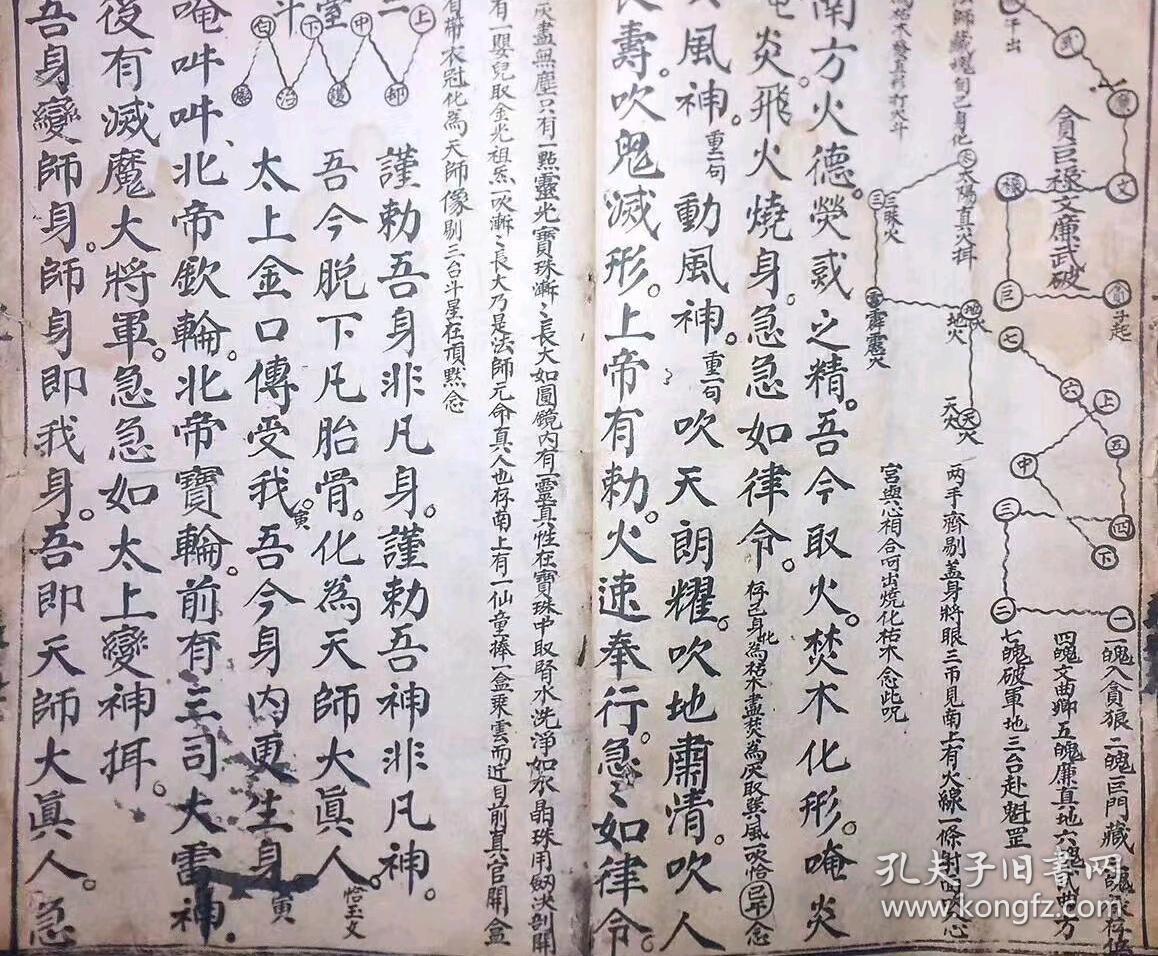 貪巨祿文廉武破
武
廉
文
祿
巨
貪
子起
七
六
上
五
中
四
三
下
二
一
四魄文曲
五魄廉真地六魄武曲方
七魄破軍地三台赴魁罡
法師藏魂自己身化
太陽真火揖
三昧火
霹靂火
地火
天火
两手齊剔盖身將眼三帀見南上有火線一條射
宮與心相合呵出燒化枯木念此咒
南方火德。熒惑之精。吾今取火。焚木化形。唵炎
炎飛火燒身。急急如律令。存己身此為枯木盡焚為灰取巽風一吹恰己午念
風神。重一句動風神。重一句吹天朗耀。吹地肅清。吹人
長壽。吹鬼滅形。上帝有勅。火速奉行。急〻如律令。
灰盡無塵只有一點靈光寶珠漸〻長大如圓鏡內有一靈真性在寶珠中取腎水洗淨如水晶珠用劍決剖開
有一嬰兒取金光祖炁吹漸〻長大乃是法師元命真人也存南上有一仙童捧一盒乘雲而近目前真官開盒
有帶衣冠化為天師像剔三台斗星在頂點念
謹勅吾身非凡身。謹勅吾神非凡神。
吾今脱下凡胎骨。化為天師大真人。恰玉文
太上金口傳受我。寅吾今身內更生身寅
二
上
中
下
台
師
護
治
唵吽吽、北帝欽輪。北帝寶輪。前有三司大雷神。
後有滅魔大將軍。急急如太上變神揖。
吾身變師身。師身即我身。吾即天師大真人。急
孔夫子旧書网
www.kongfz.com